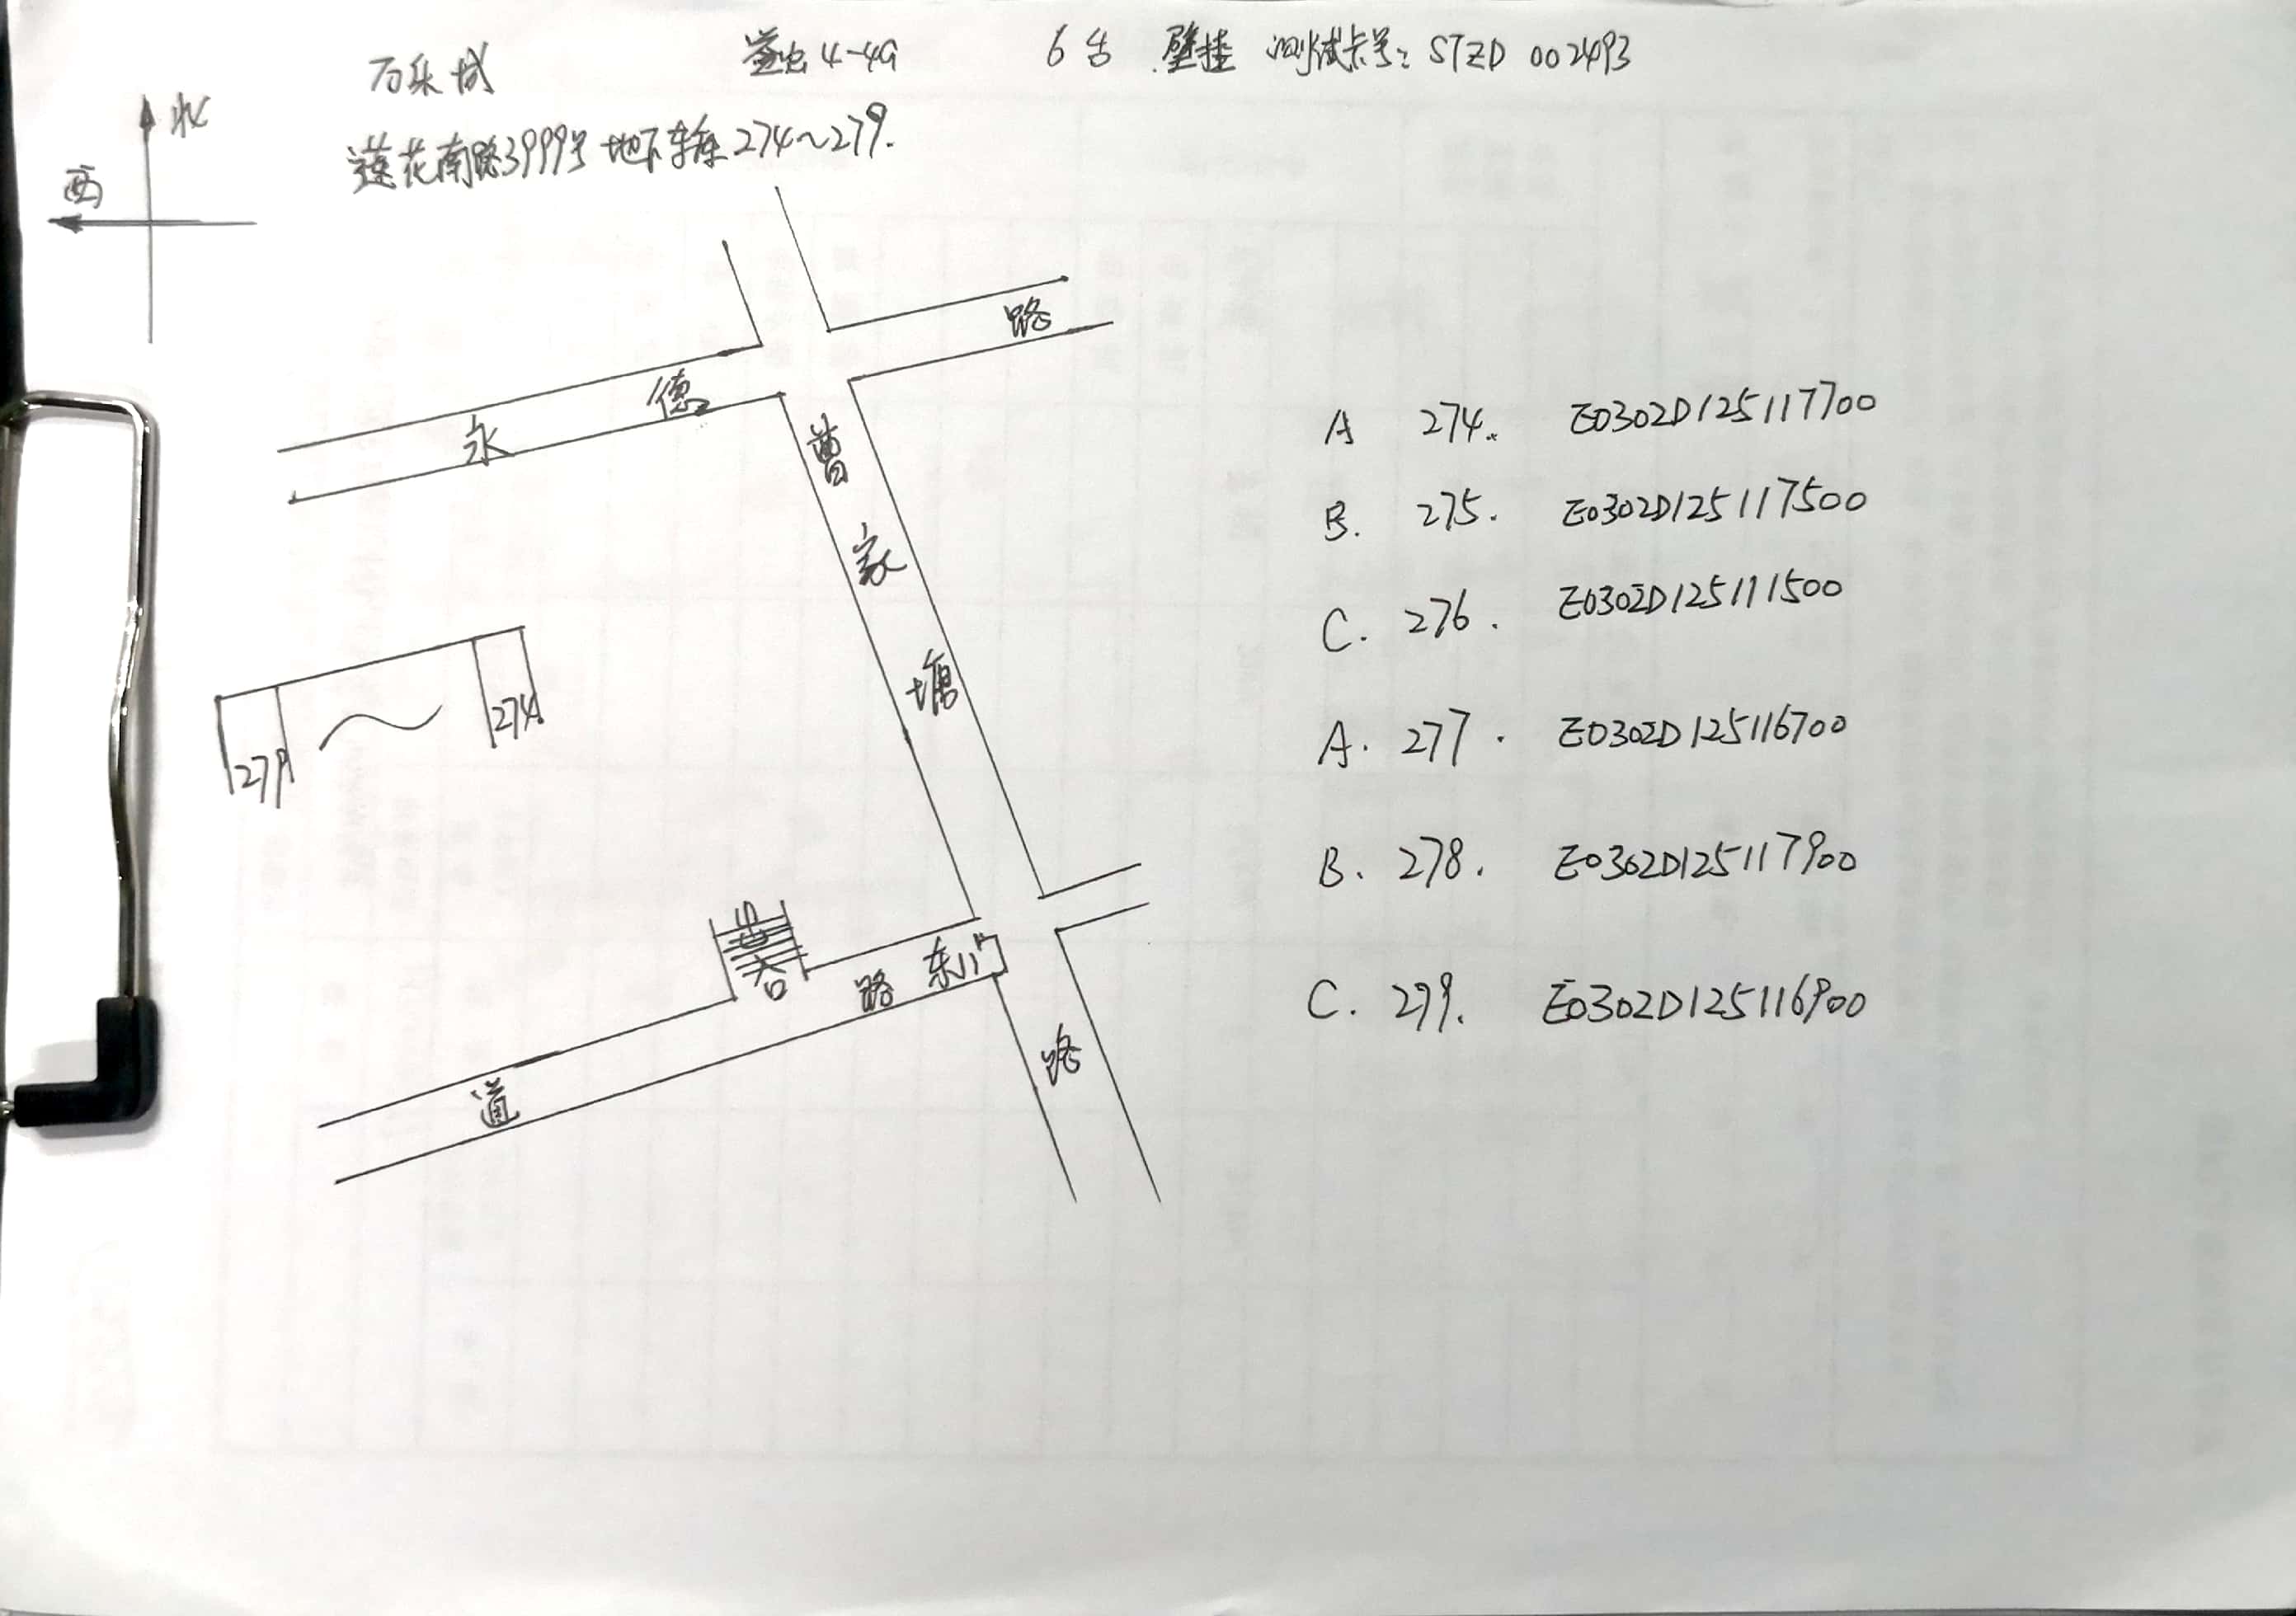 万乐城
4-4G
6台 壁挂 测试卡号: STZD 002493
莲花南路3999号 地下车库 274~279.
北
西
永德路
曹家塘路
279
274
出入口
道路
东门
A 274. E0302D125117700
B. 275. E0302D125117500
C. 276. E0302D125111500
A. 277. E0302D125116700
B. 278. E0302D125117900
C. 279. E0302D125116900